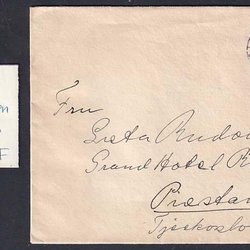 Fru
Greta Rudo
Grand Hotel R
Piesta
Tjeckoslo